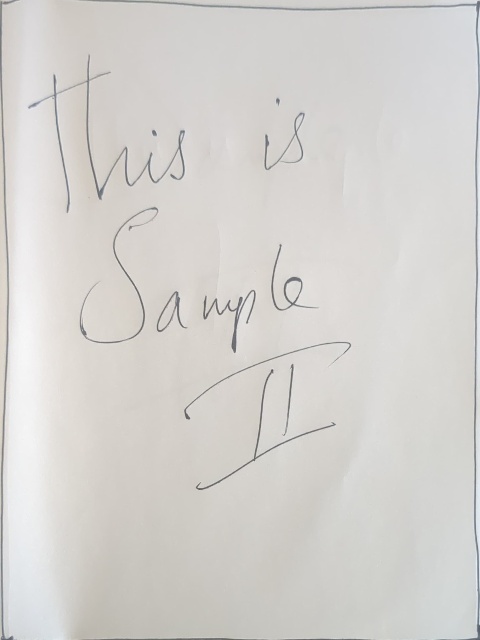 This is
Sample
II